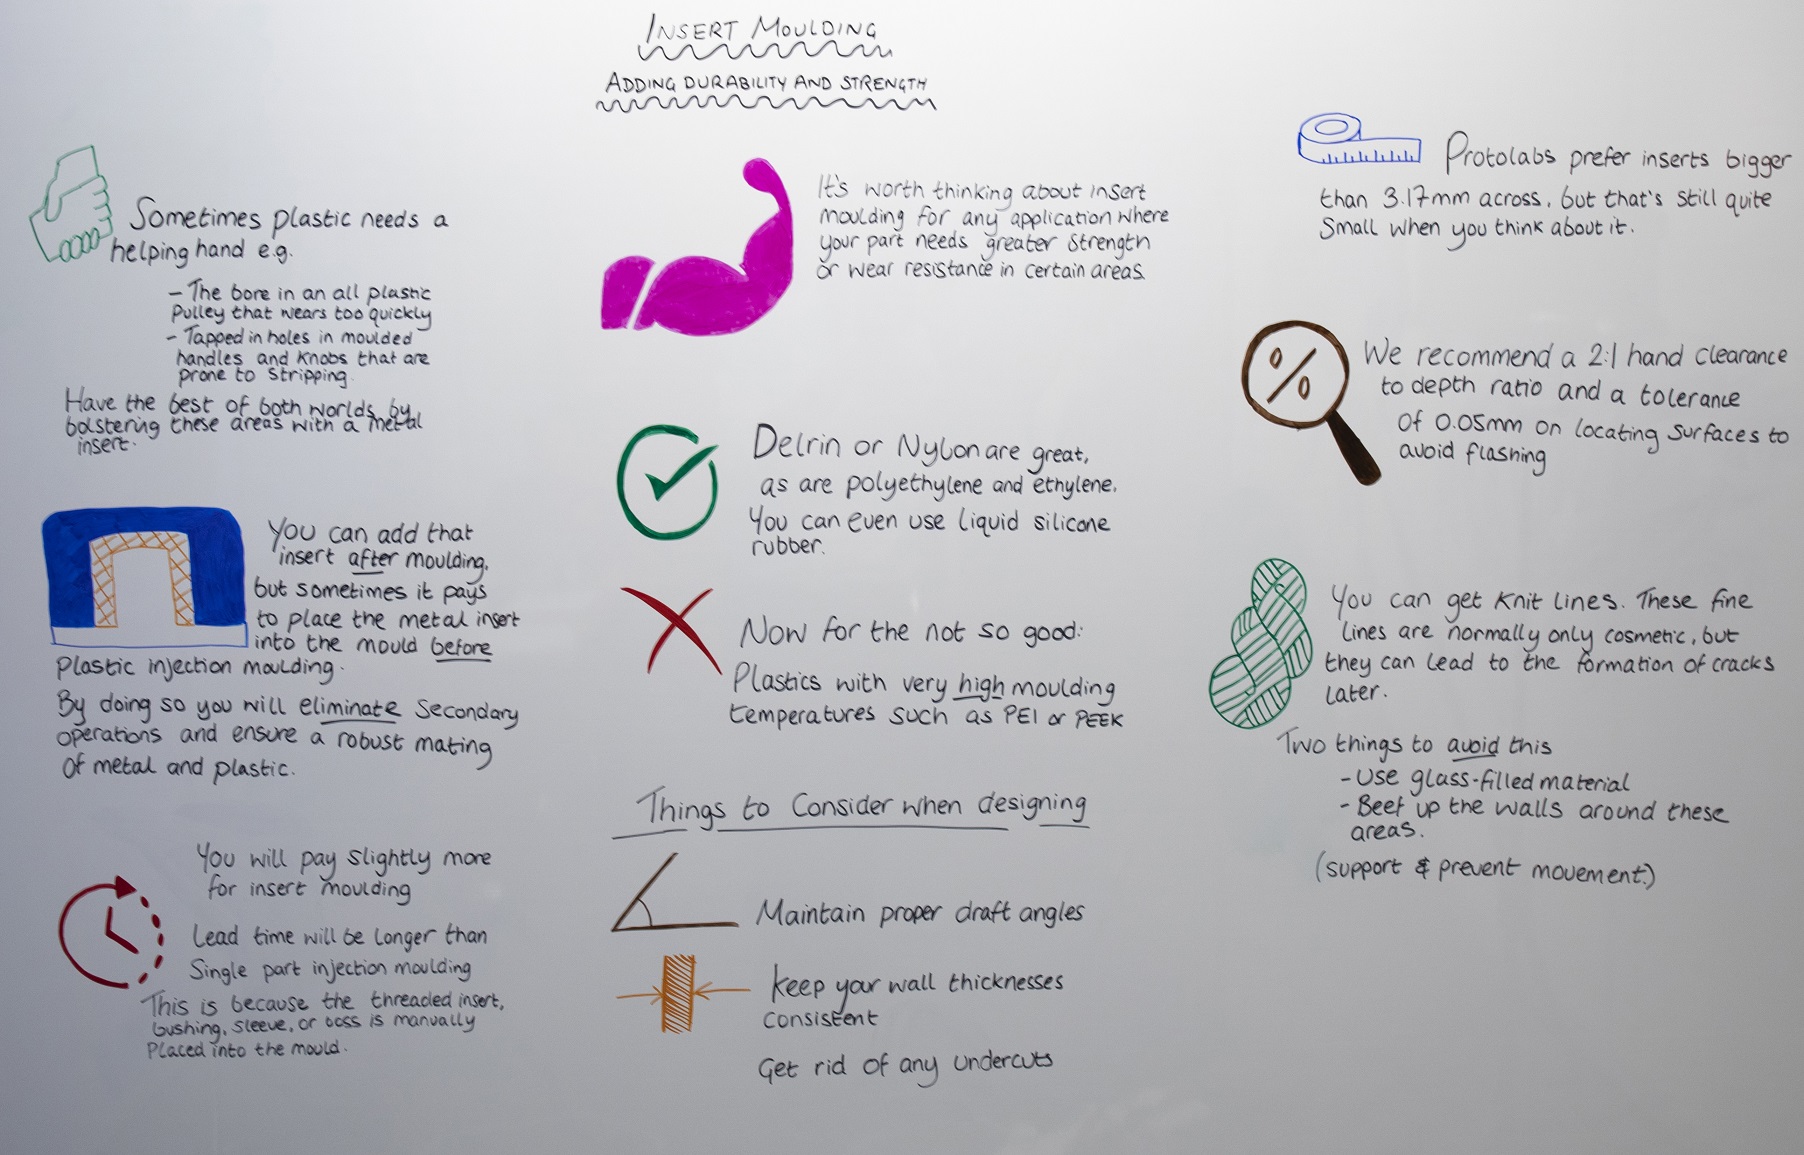 INSERT MOULDING
ADDING DURABILITY AND STRENGTH
Sometimes plastic needs a
helping hand e.g.
- The bore in an all plastic
Pulley that wears too quickly
- Tapped in holes in moulded
handles and knobs that are
prone to stripping.
Have the best of both worlds by
bolstering these areas with a metal
insert.
You can add that
insert after moulding,
but sometimes it pays
to place the metal insert
into the mould before
plastic injection moulding.
By doing so you will eliminate secondary
operations and ensure a robust mating
of metal and plastic.
You will pay slightly more
for insert moulding
Lead time will be longer than
Single part injection moulding
This is because the threaded insert,
bushing, sleeve, or boss is manually
Placed into the mould.
It's worth thinking about insert
moulding for any application where
your part needs greater strength
or wear resistance in certain areas.
Delrin or Nylon are great,
as are polyethylene and ethylene.
You can even use liquid silicone
rubber.
Now for the not so good:
Plastics with very high moulding
temperatures such as PEI or PEEK
Things to Consider when designing
Maintain proper draft angles
Keep your wall thicknesses
consistent
Get rid of any undercuts
Protolabs prefer inserts bigger
than 3.17mm across, but that's still quite
Small when you think about it.
%
We recommend a 2:1 hand clearance
to depth ratio and a tolerance
of 0.05mm on locating surfaces to
avoid flashing
You can get knit lines. These fine
lines are normally only cosmetic, but
they can lead to the formation of cracks
later.
Two things to avoid this
- Use glass-filled material
- Beef up the walls around these
areas.
(support & prevent movement.)